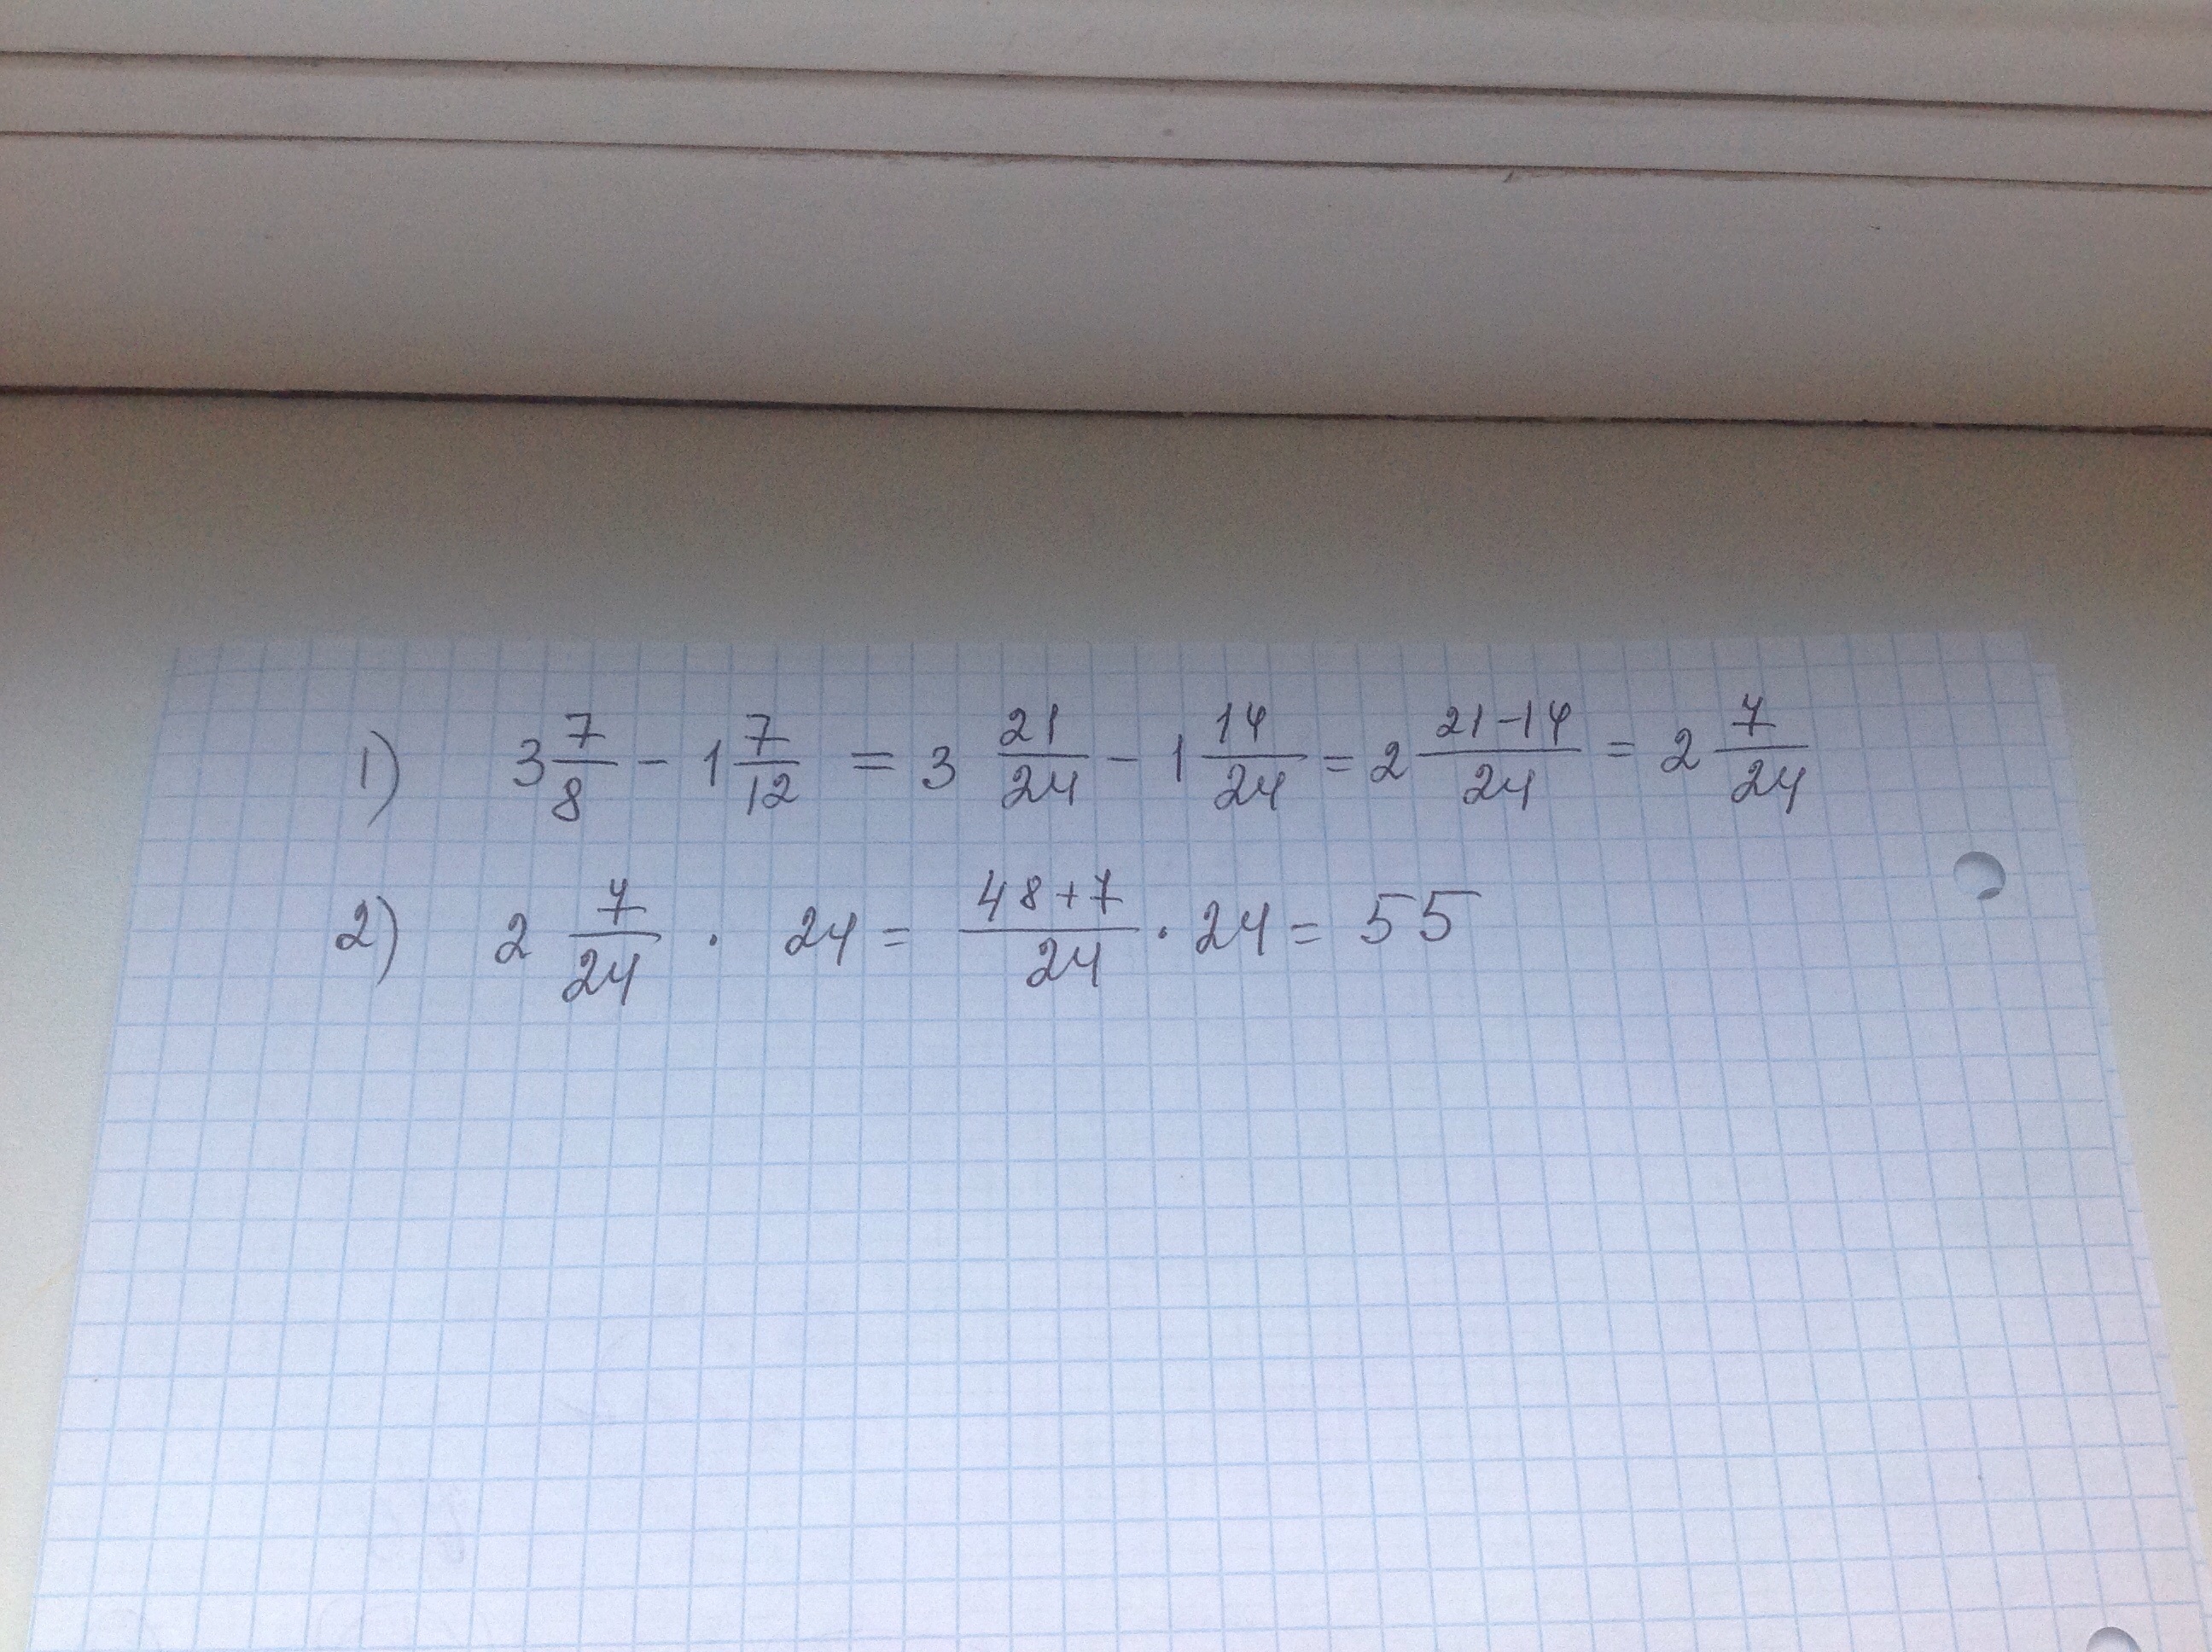 1) 3 7/8 - 1 7/12 = 3 21/24 - 1 14/24 = 2 21-14/24 = 2 7/24
2) 2 7/24 · 24 = 48+7/24 · 24 = 55